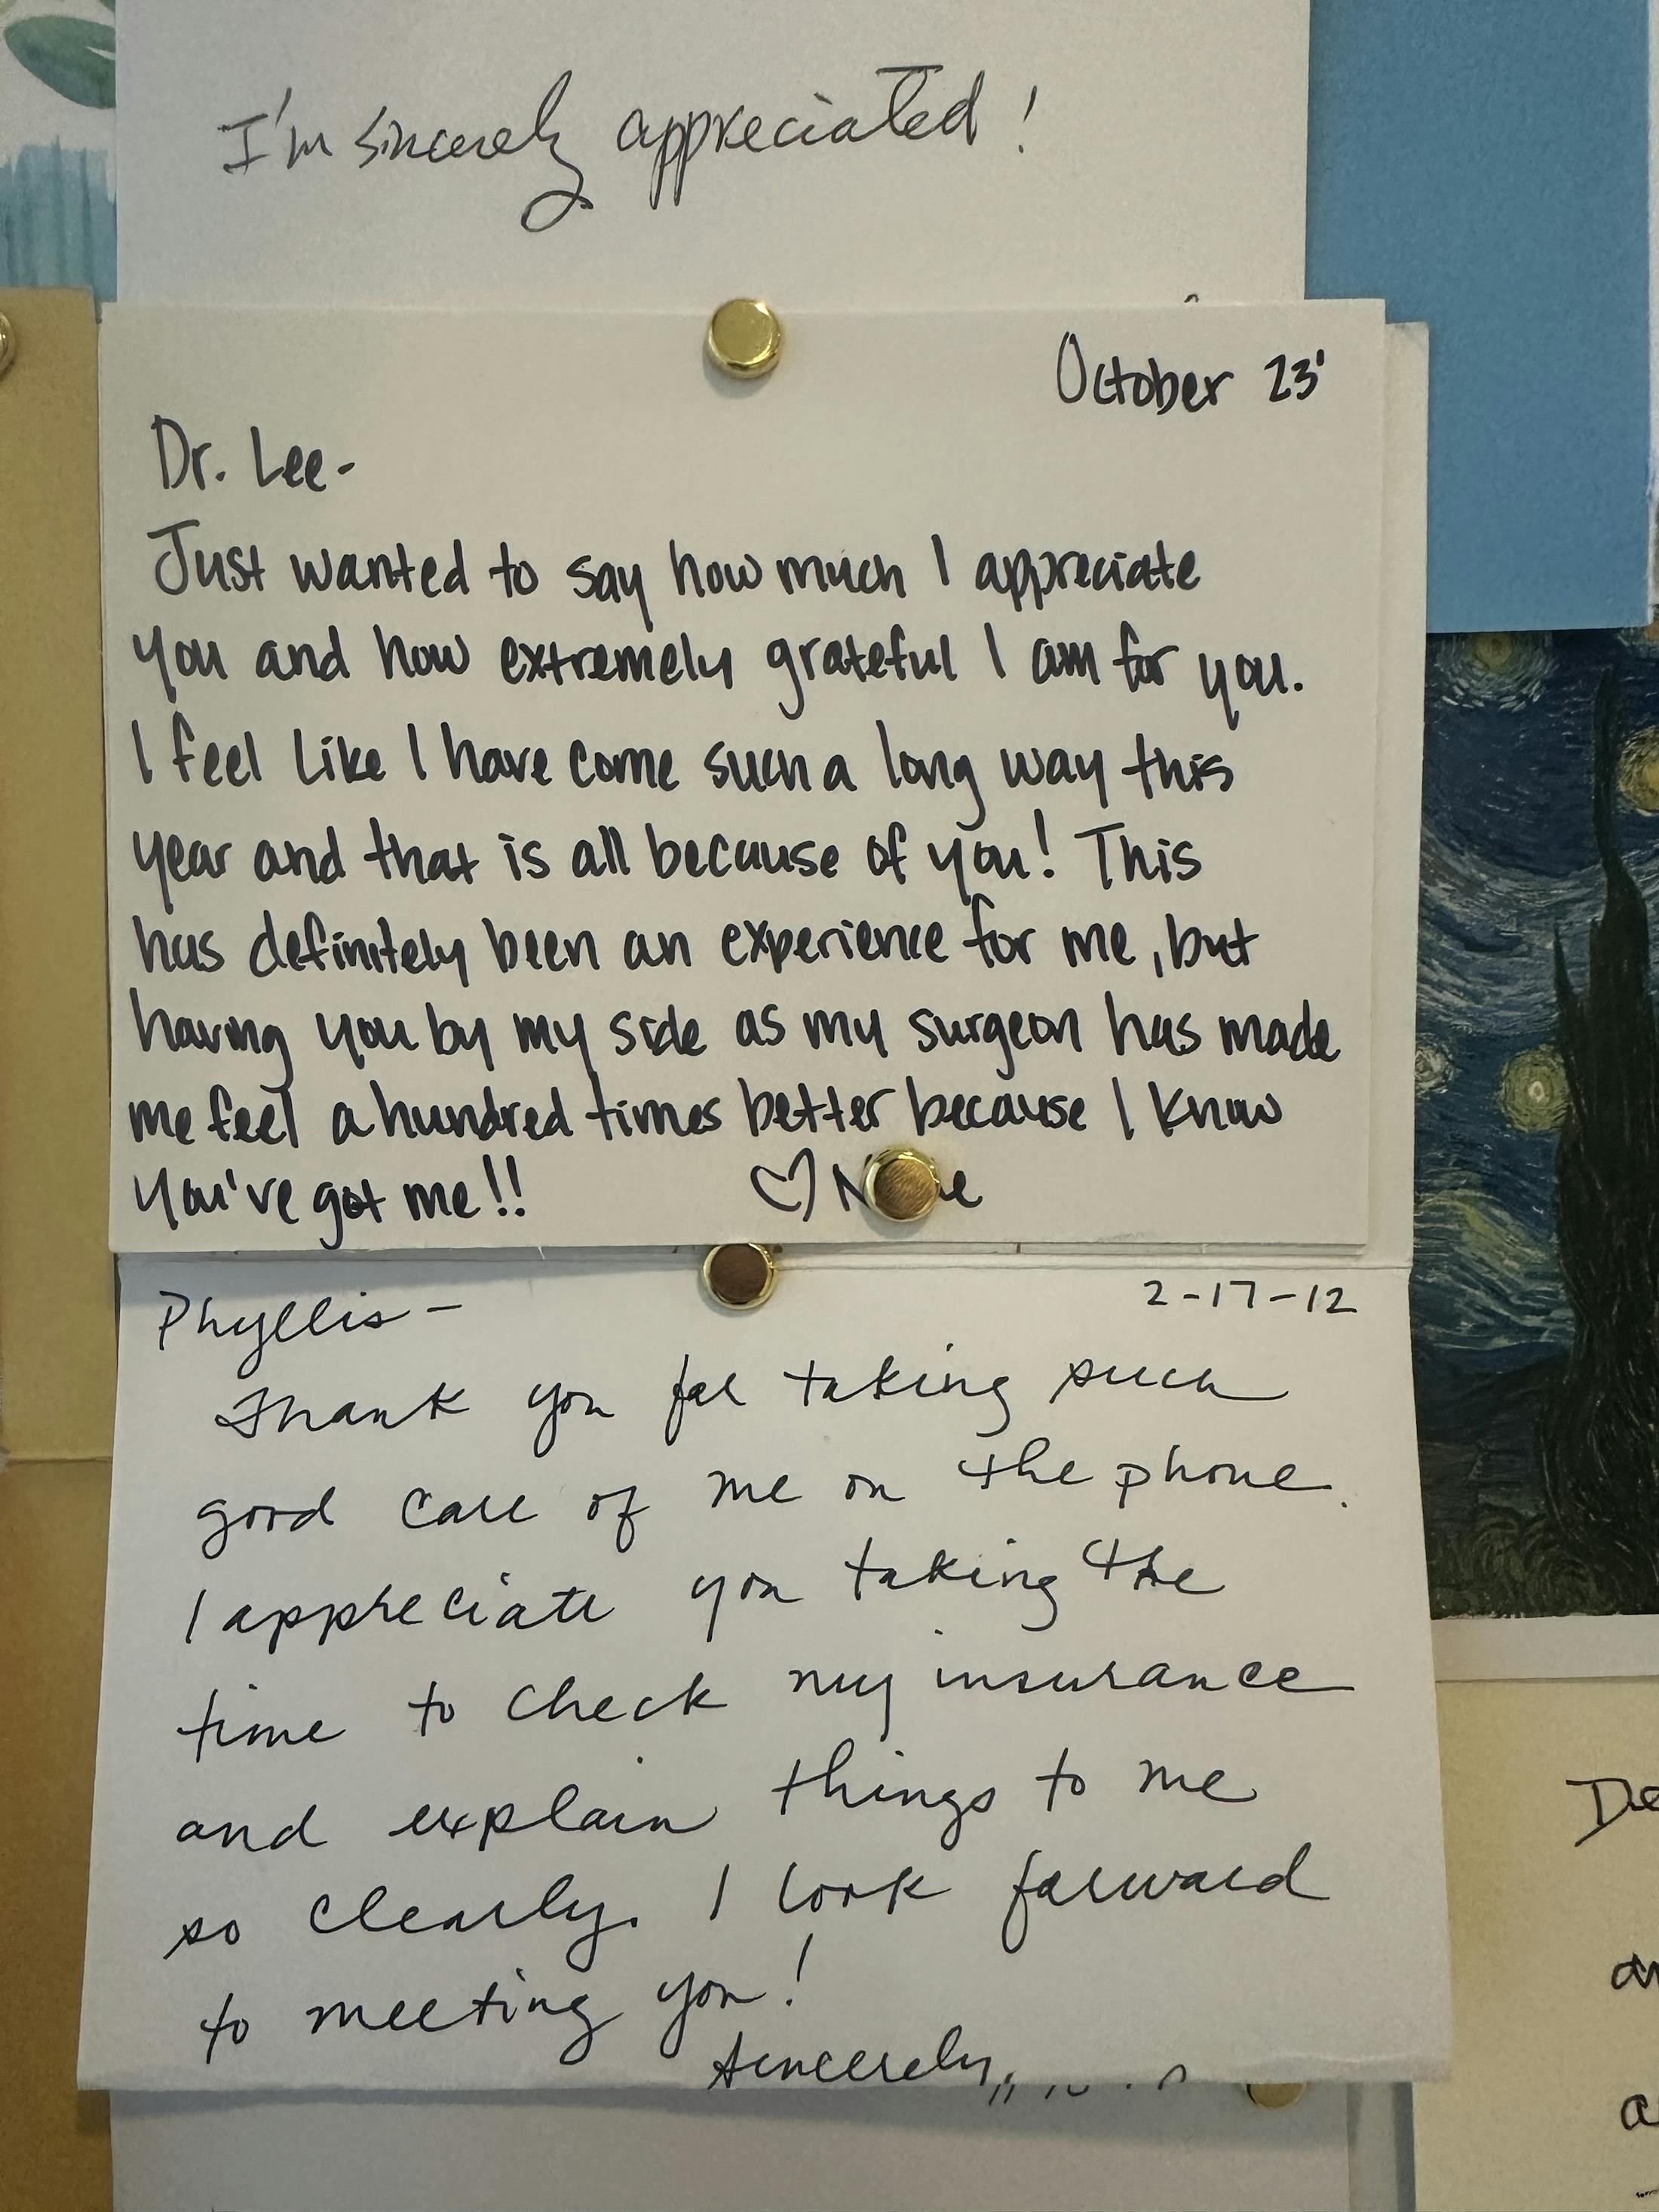 I'm sincerely appreciated!
October 23'
Dr. Lee-
Just wanted to say how much I appreciate
you and how extremely grateful I am for you.
I feel like I have come such a long way this
year and that is all because of you! This
has definitely been an experience for me, but
having you by my side as my surgeon has made
me feel a hundred times better because I know
you've got me!!
Phyllis- 2-17-12
Thank you for taking such
good care of me on the phone.
I appreciate you taking the
time to check my insurance
and explain things to me
so clearly. I look forward
to meeting you!
Sincerely,